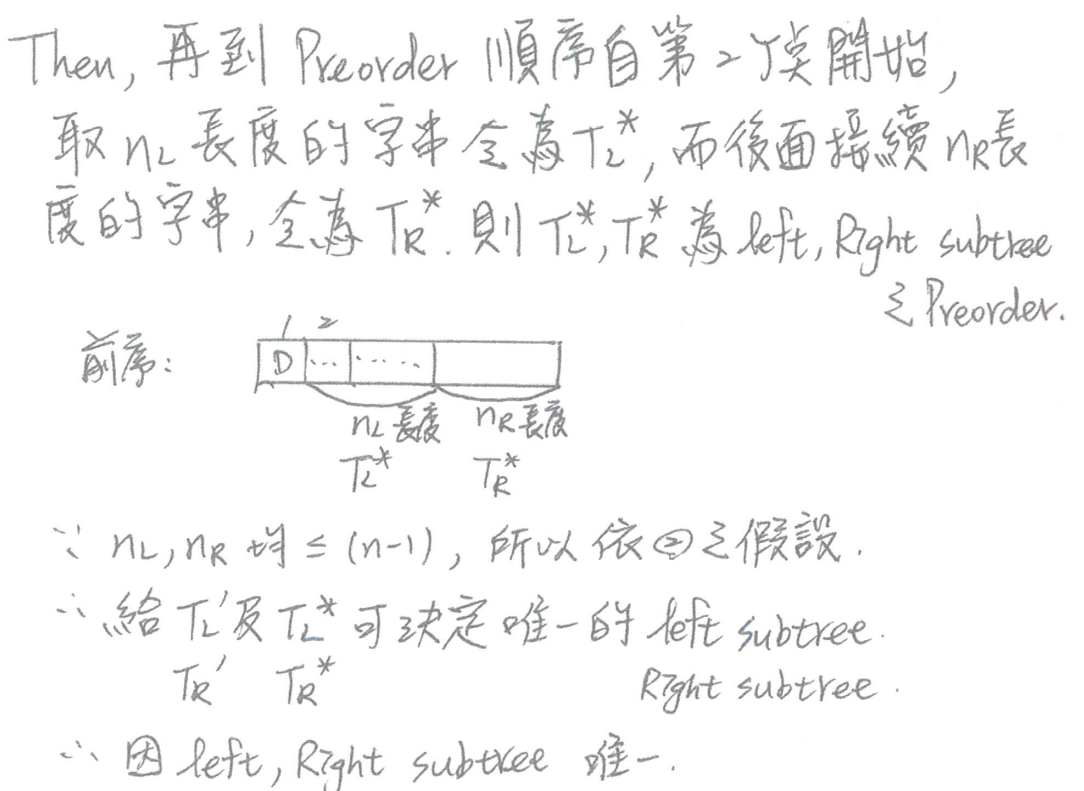 Then, 再到 Preorder 順序自第2點開始,
取 nL 長度的字串令為 TL*, 而後面接續 nR長
度的字串, 令為 TR*. 則 TL*, TR* 為 left, Right subtree
之 Preorder.
1 2
前序: D ... .....
nL 長度 nR 長度
TL* TR*
∵ nL, nR 均 ≤ (n-1), 所以依②之假設.
∴ 給 TL' 及 TL* 可決定唯一的 left subtree.
TR' TR* Right subtree.
∴ 因 left, Right subtree 唯一.